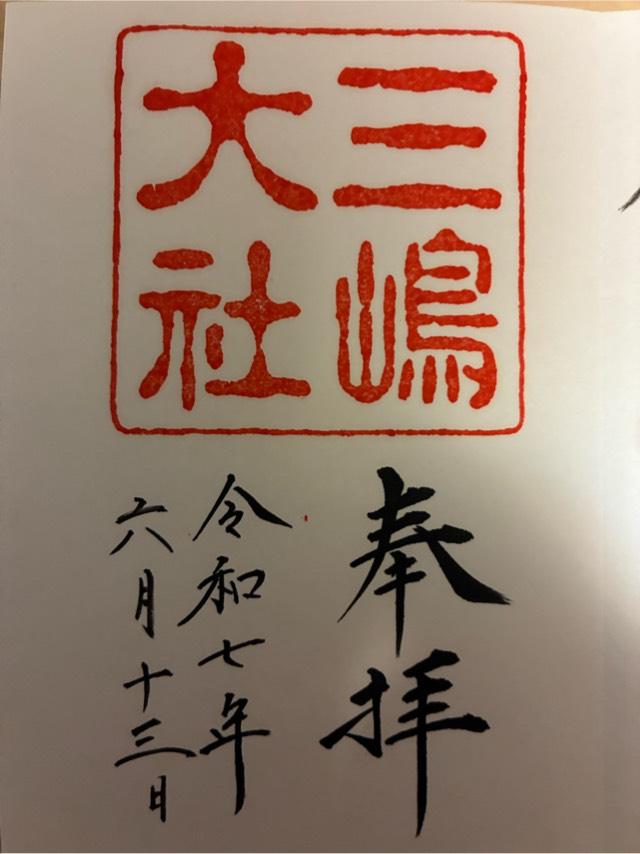 三嶋
大社
奉拝
令和七年
六月十三日